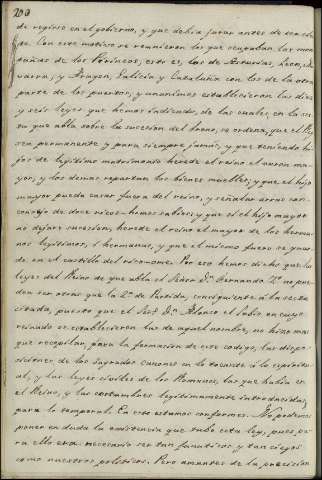 200
de regirse en el gobierno, y que debia jurar antes de ser elegi-
do. Con este motivo se reunieron los que ocupaban las mon-
tañas de los Pirineos, esto es, las de Asturias, Jaca, Na-
varra, y Aragon, Galicia y Cataluña con los de la otra
parte de los puertos, y unanimes establecieron las diez
y seis leyes que hemos indicado, de las cuales, en la se-
que abla sobre la sucesion del trono, se ordena, que el Rey
sea permanente y para siempre jamás, y que teniendo hi-
jos de legitimo matrimonio herede el reino el varon ma-
yor, y los demas repartan los bienes muebles, y que el hijo
mayor pueda casar fuera del reino, y señalar arras con
consejo de doce ricos-homes sabios; y que si el hijo mayor
no dejare sucesion, herede el reino el mayor de los herma-
nos legitimos, ó hermanas, y que el mismo fuero se guar-
de en el castillo del rico-ome. Por eso hemos dicho que las
leyes del Reino de que abla el Señor Dn. Fernando 7º. no pue-
den ser otras que la 2ª. de Partida, consiguiente á la secta
citada, puesto que el Sor. Dn. Alonso el Sabio en cuyo
reinado se establecieron las de aquel nombre, no hizo mas
que recopilar, para la formacion de este codigo, las dispo-
siciones de los sagrados canones en lo tocante á lo espiritu-
al, y las leyes civiles de los Romanos, las que habia en
el Reino, y las costumbres legitimamente introducidas,
para lo temporal. En esto estamos conformes. No podemos
poner en duda la existencia que tubo esta ley, pues pa-
ra ello era necesario ser tan fanaticos y tan ciegos
como nuestros politicos. Pero amantes de la precision